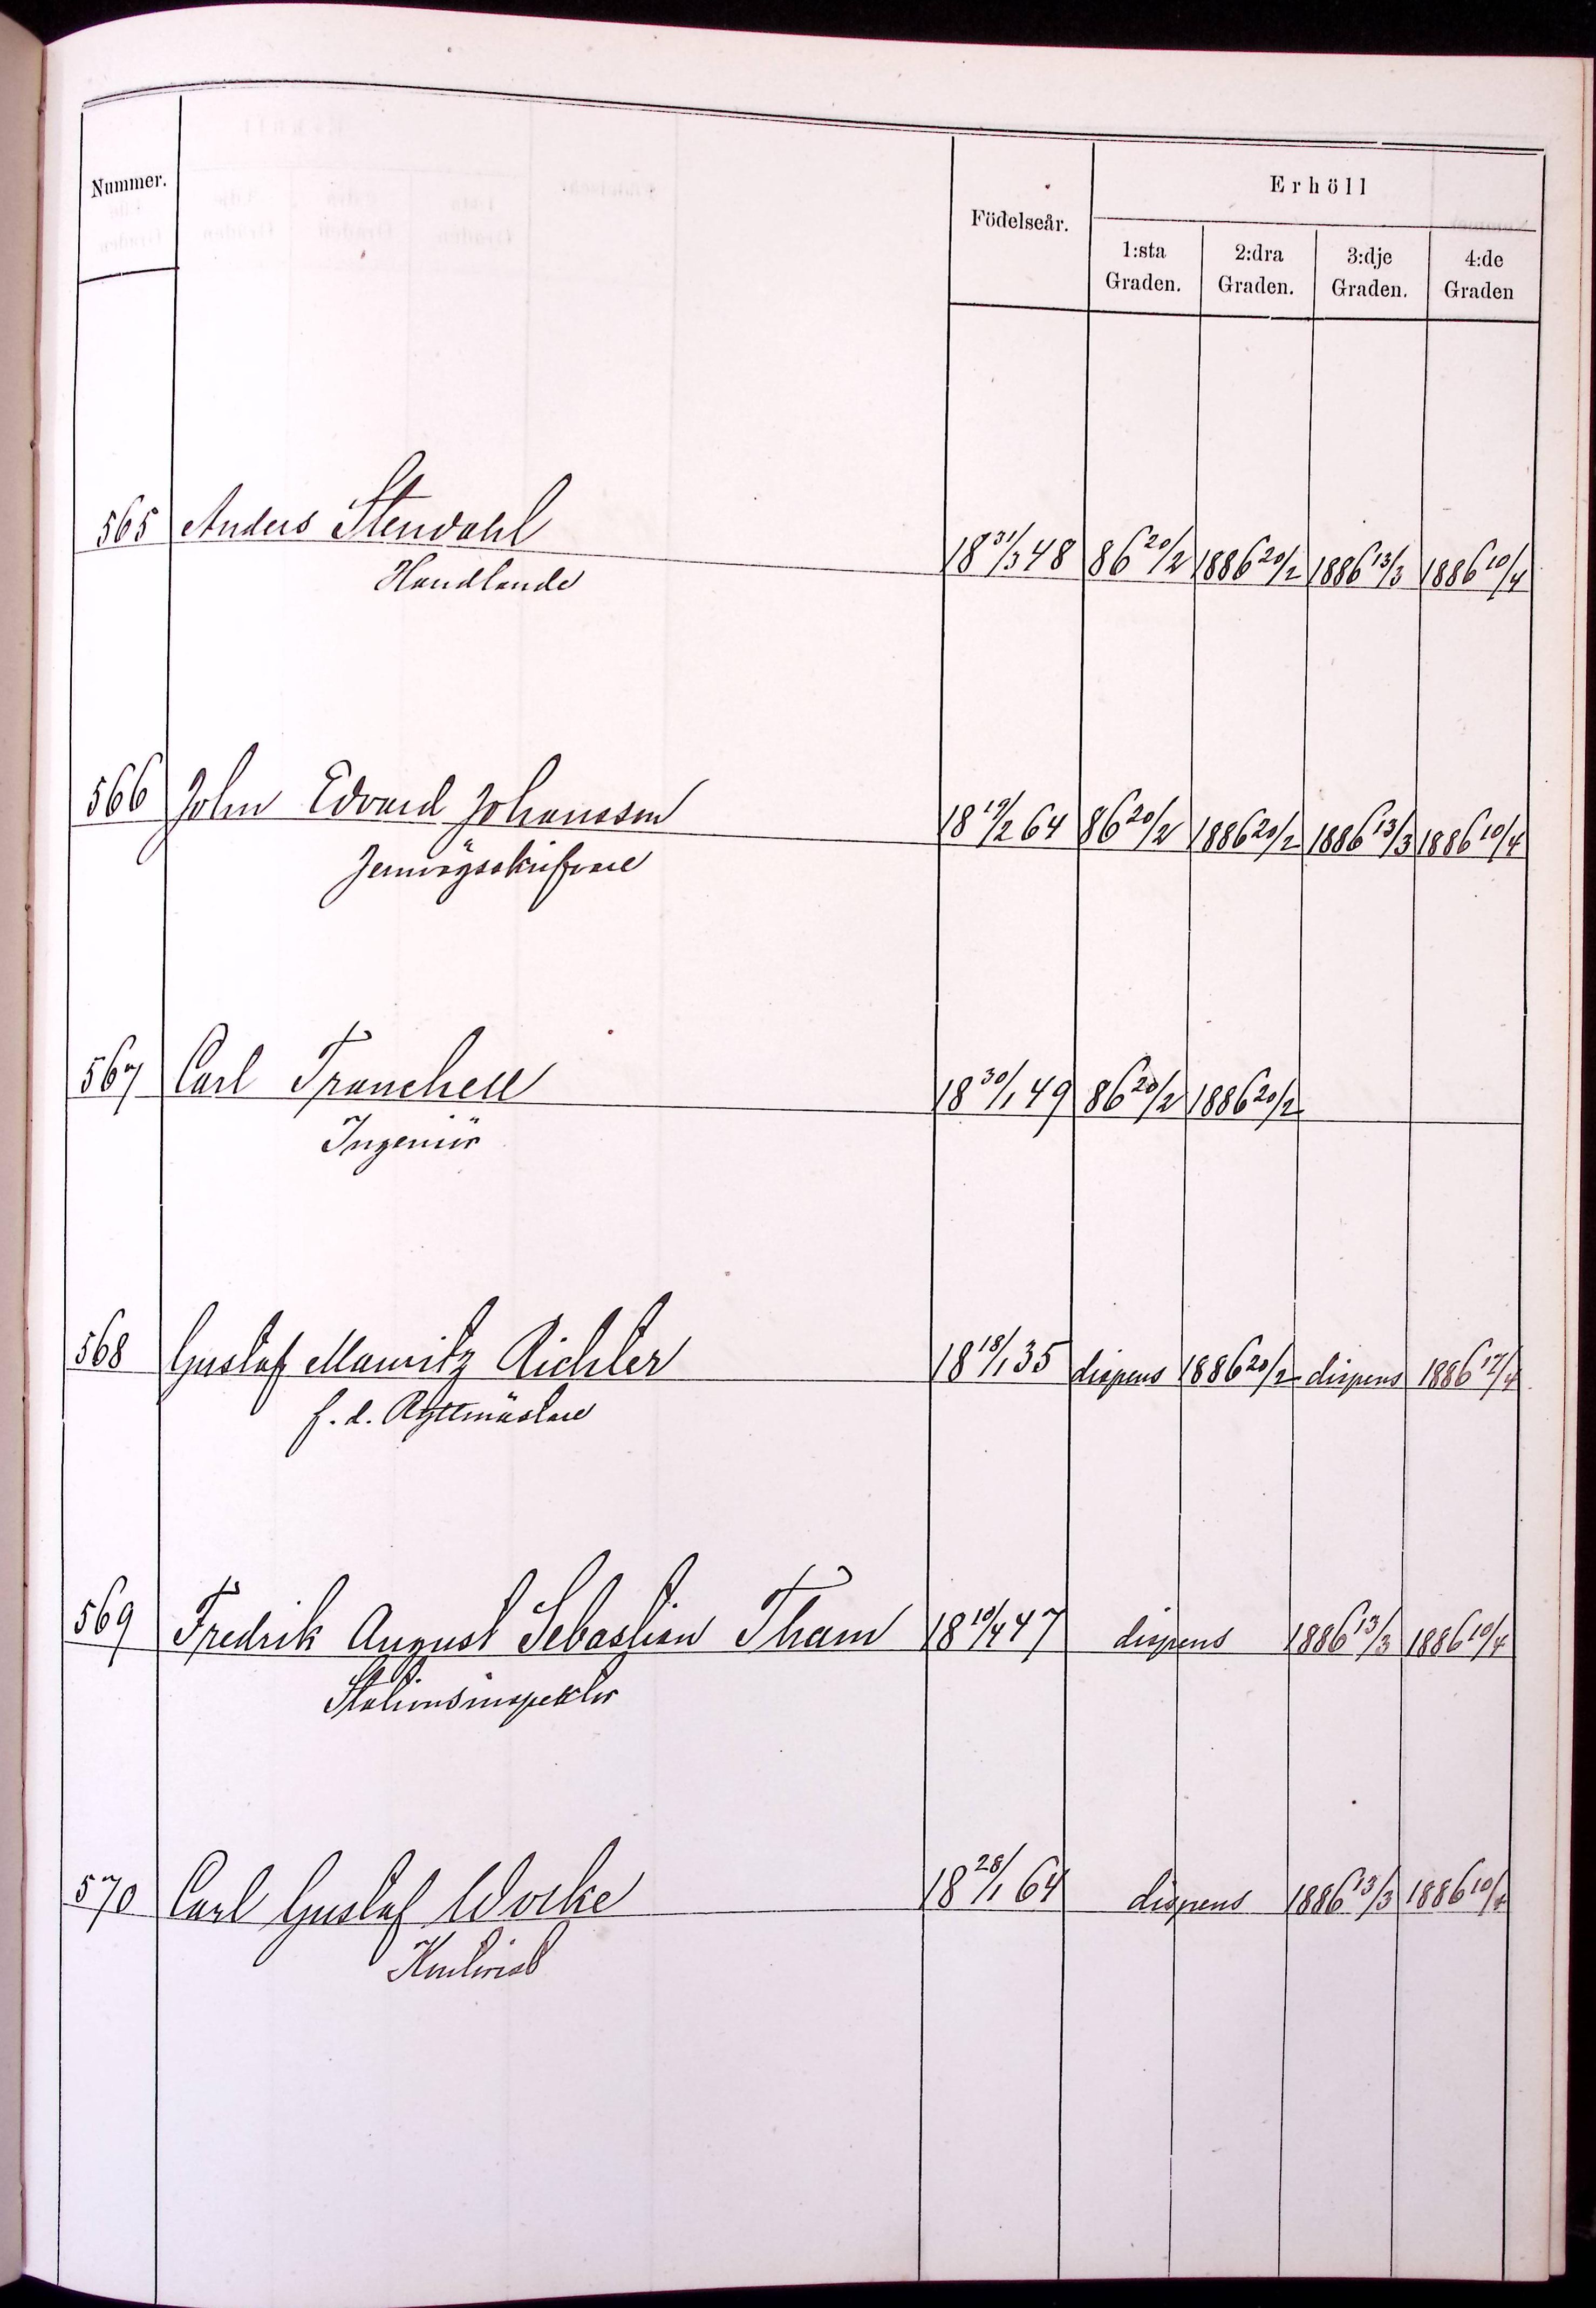 Nummer.
Födelseår.
Erhöll
1:sta Graden.
2:dra Graden.
3:dje Graden.
4:de Graden
565 Anders Stendahl 18 31/3 48 86 20/2 1886 20/2 1886 13/3 1886 10/4
Handlande
566 John Edvard Johansson 18 19/2 64 86 20/2 1886 20/2 1886 13/3 1886 10/4
Jernvägsskrifvare
567 Carl Tranchell 18 30/1 49 86 20/2 1886 20/2
Ingeniör
568 Gustaf Mauritz Richter 18 18/1 35 dispens 1886 20/2 dispens 1886 17/4
f. d. Ryttmästare
569 Fredrik August Sebastian Tham 18 10/4 47 dispens 1886 13/3 1886 10/4
Stationsinspektor
570 Carl Gustaf Worke 18 28/1 64 dispens 1886 13/3 1886 10/4
Kontorist